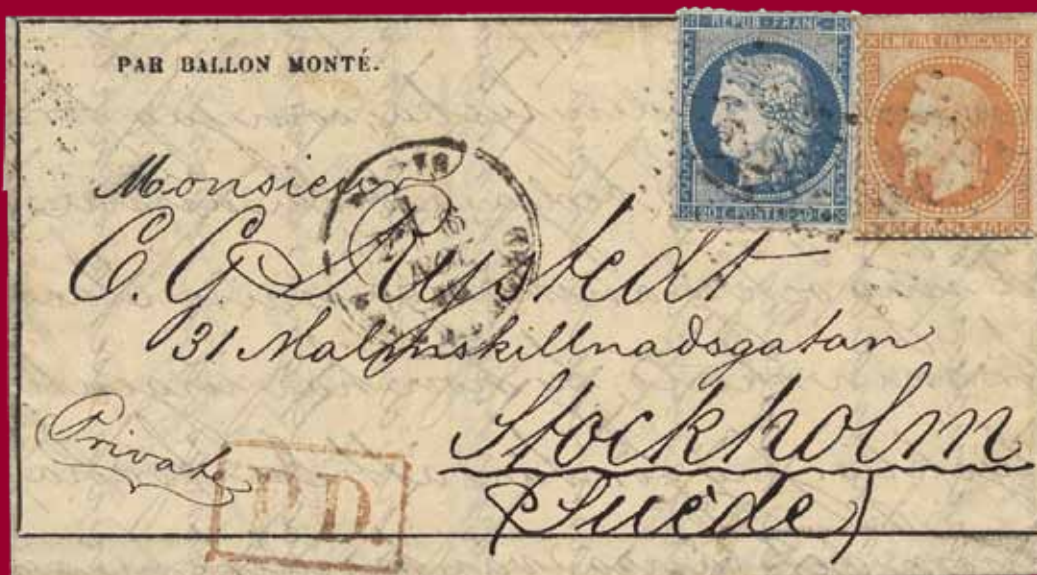 PAR BALLON MONTÉ.
REPUB·FRANC·
20·C·POSTES·20·C
EMPIRE FRANÇAIS
Monsieur
C. G. Rystedt
31 Malmskillnadsgatan
Stockholm
(Suède)
Private
P.D.